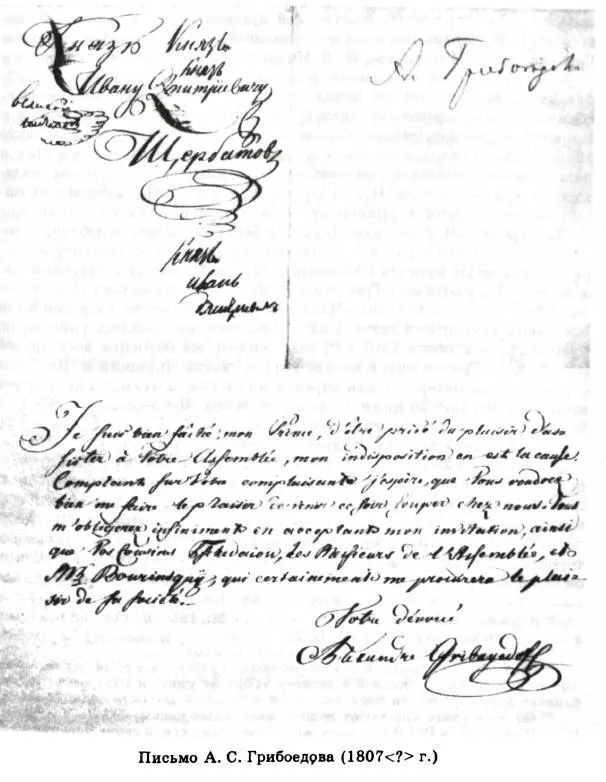 Князю Князь
князь
Ивану Дмитріевичу
великой
Щербатову
князь
иванъ
А. Грибоедовъ
Je suis bien fâché, mon Prince, d'être privé du plaisir d'as
sister à Votre Assemblée, mon indisposition en est la cause.
Comptant sur Votre complaisante j'espère, que Vous voudrez
bien me faire le plaisir de venir ce soir souper chez nous. Vous
m'obligerez infiniment en acceptant mon invitation, ainsi
que Vos Cousins Tshedaiou, Les Messieurs de l'Assemblée, et
Mr Bourinsquy, qui certainement me procurera le plai-
sir de sa société.
Votre dévoué
Alexandre Griboyedoff
Письмо А. С. Грибоедова (1807<?> г.)